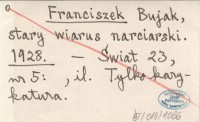 Franciszek Bujak,
stary wiarus narciarski.
1928. — Świat 23,
nr 5: , il. Tylko kary-
katura.